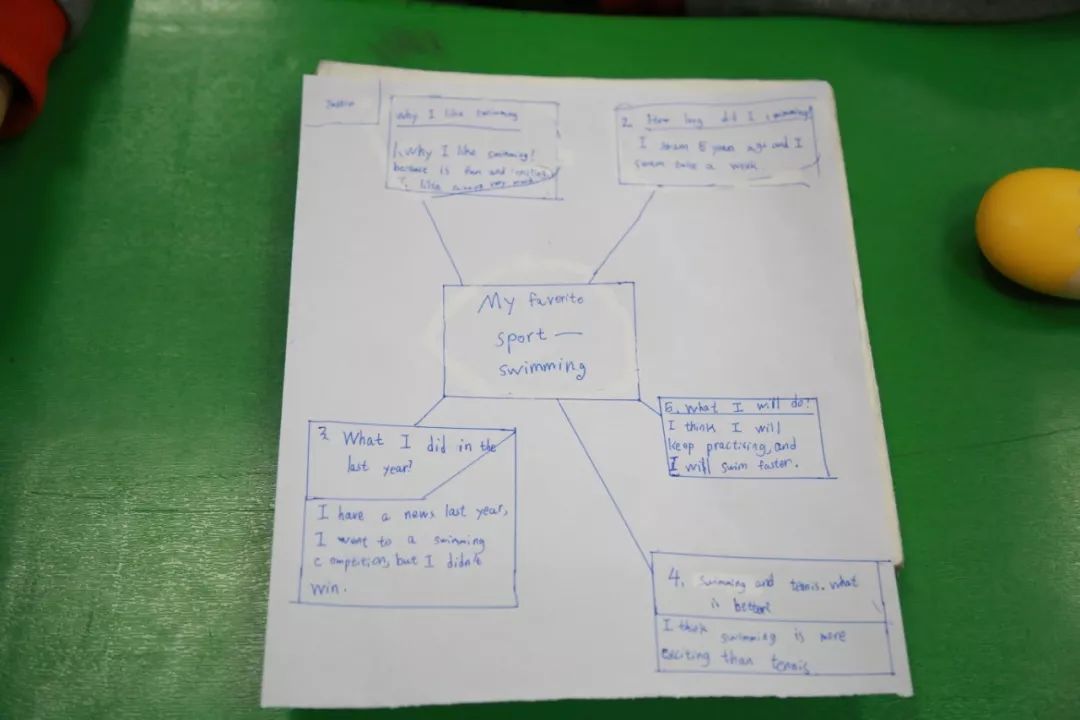 Justin
Why I like swimming
1. Why I like swimming?
because is fun and exciting
I like very much
2. How long did I swimming?
I swam 5 years ago and I
swam twice a week.
My favorite
sport —
swimming
3. What I did in the
last year?
I have a news last year,
I went to a swimming
comptition, but I didn't
win.
5. What I will do?
I think I will
keep practising, and
I will swim faster.
4. Swimming and tennis. what
is better?
I think swimming is more
exciting than tennis